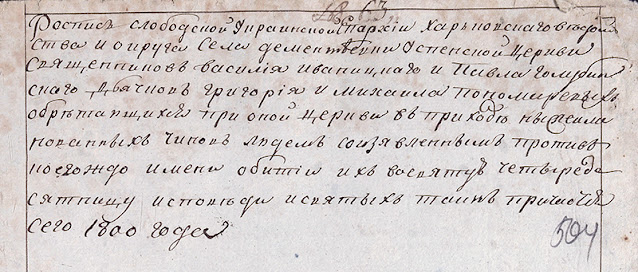 63.
Роспись слободской Украинской Епархии Харьковскаго ведом
ства и округа Села дементѣевки Успенской Церкви
Священников василія иваницкаго и Павла
скаго Дьячков григорія и михаила пономаревых
обрѣтающихся при оной церкви в приходѣ нижеиме
нованных чинов людем соизявлением против
коегождо имени о битіи их восвятую четыреде
сятницу исповѣди исвятых таин причастія
сего 1800 года
504